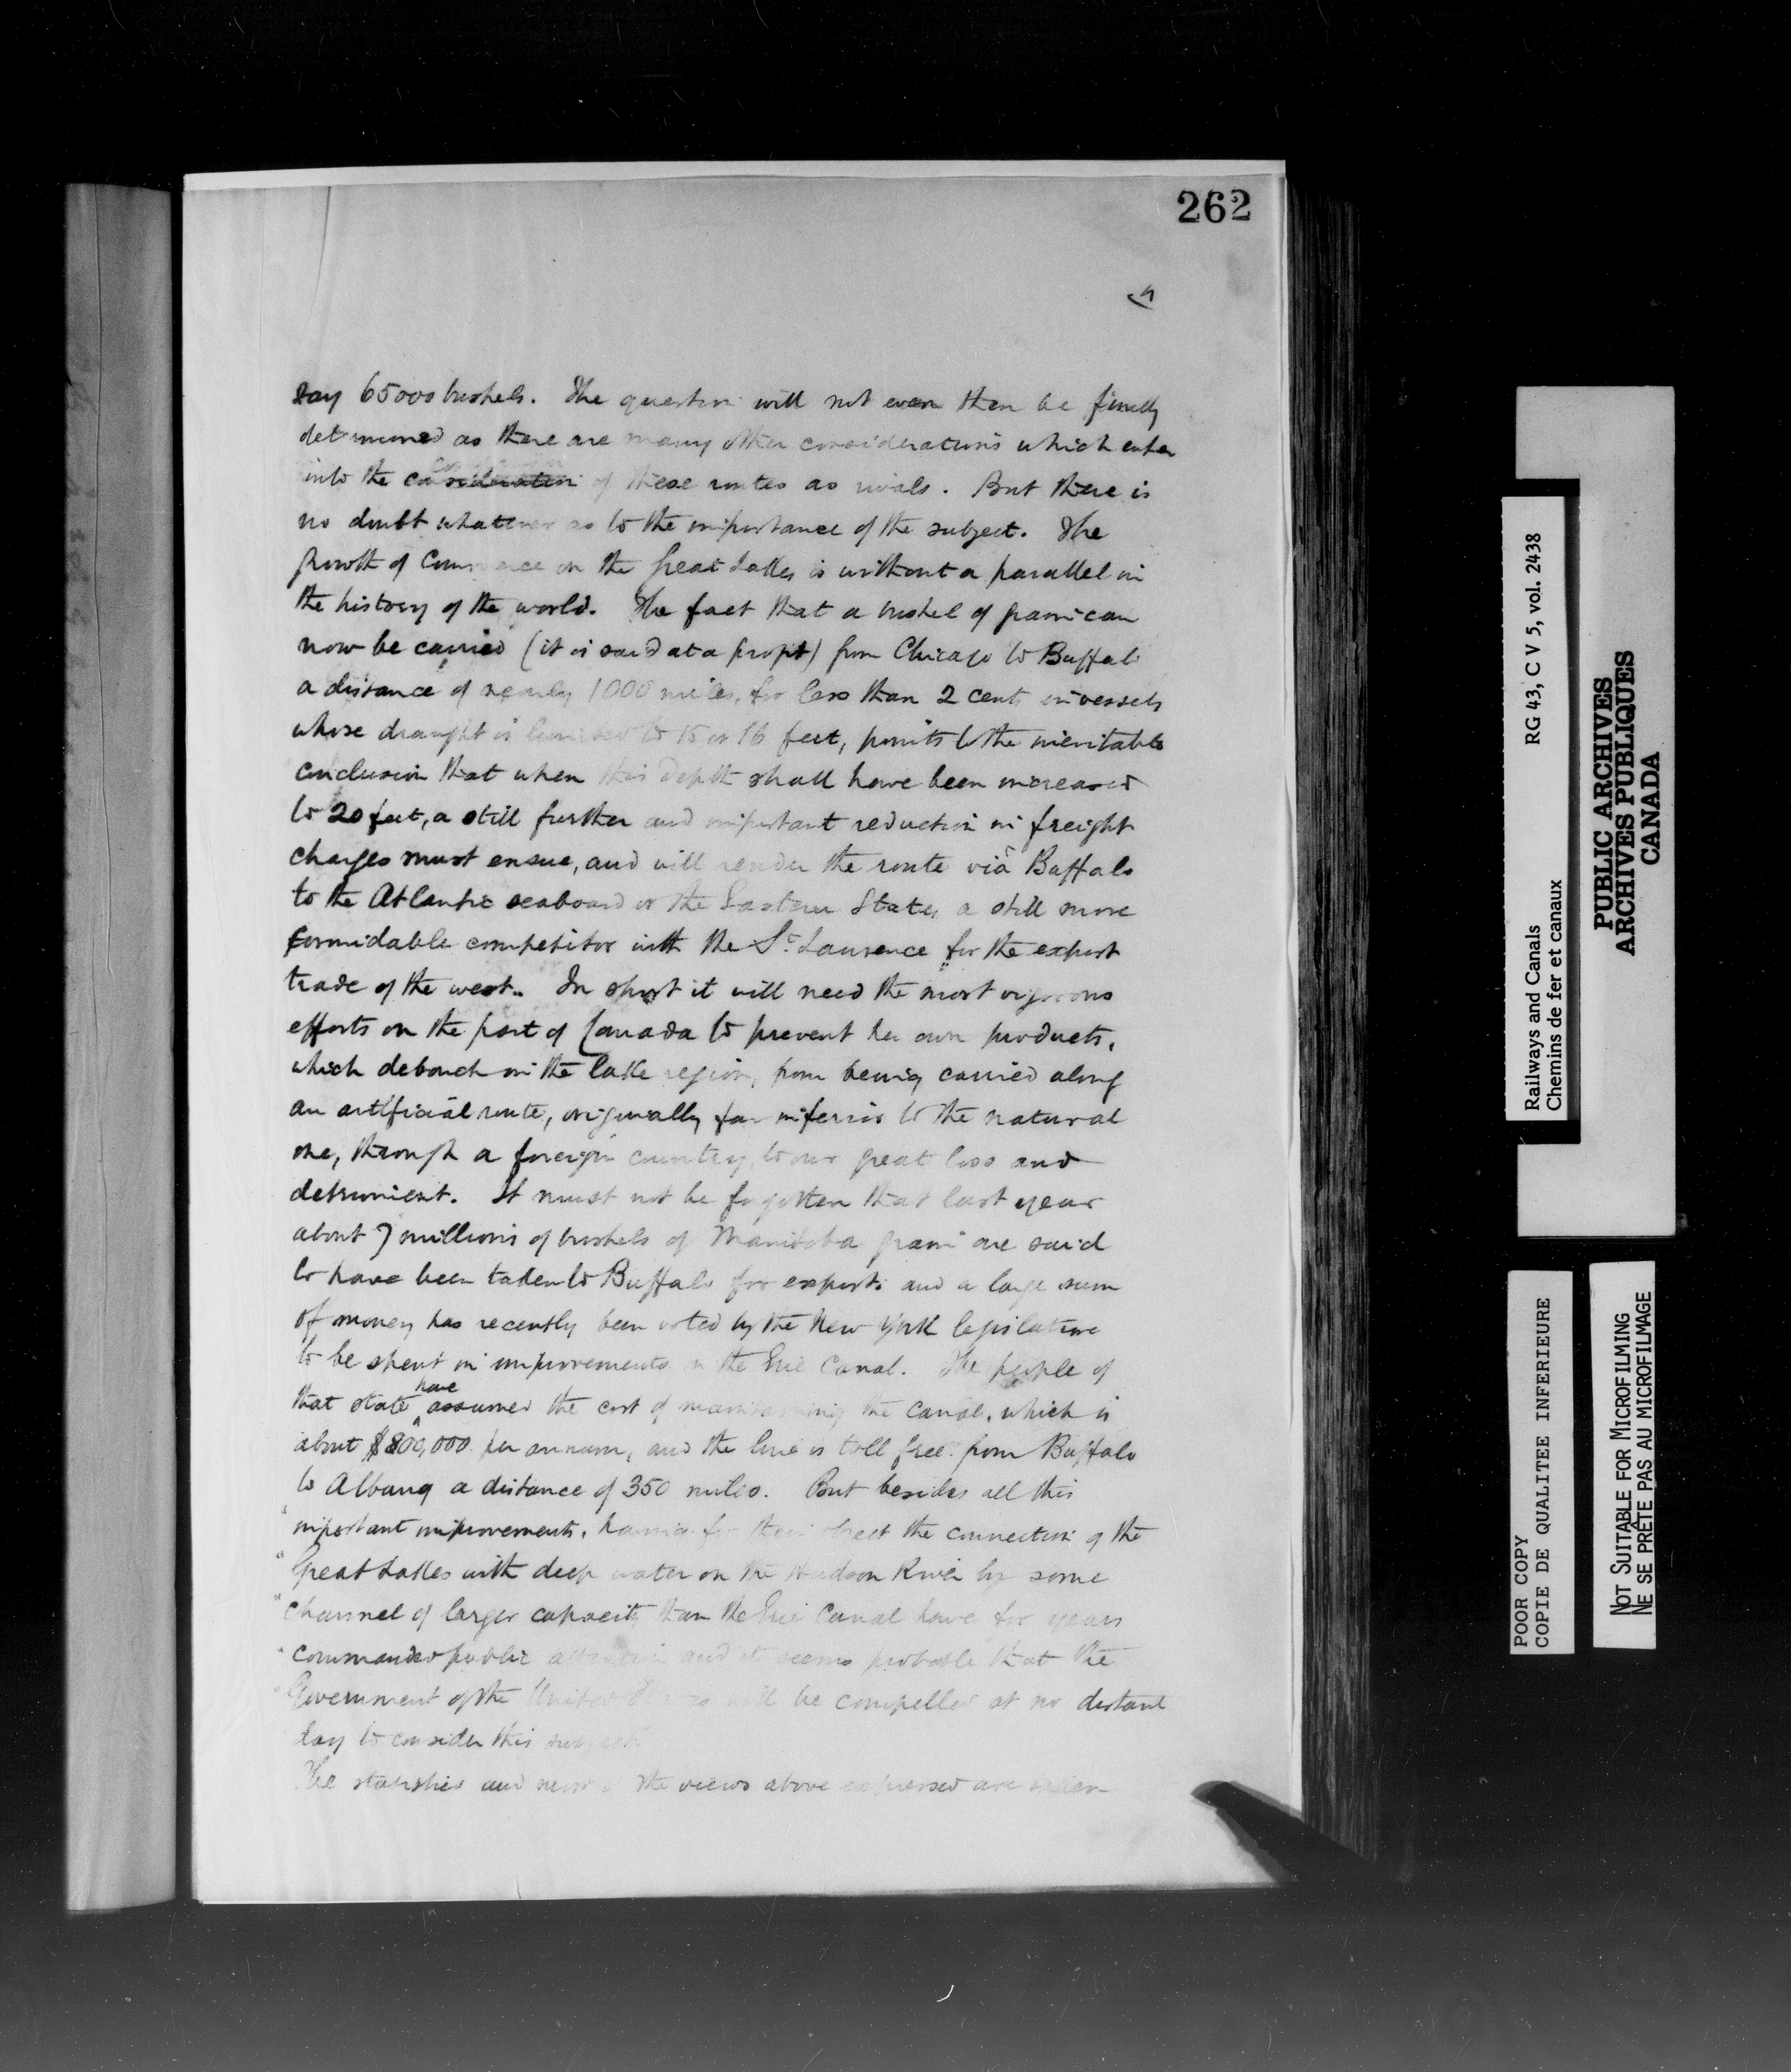 262
say 65000 bushels. The question will not even then be finally
determined as there are many other considerations which enter
into the consideration of these routes as rivals. But there is
no doubt whatever as to the importance of the subject. The
growth of Commerce on the Great Lakes is without a parallel in
the history of the world. The fact that a bushel of grain can
now be carried (it is said at a profit) from Chicago to Buffalo
a distance of nearly 1000 miles, for less than 2 cents in vessels
whose draught is limited to 15 or 16 feet, points to the inevitable
conclusion that when this depth shall have been increased
to 20 feet, a still further and important reduction in freight
charges must ensue, and will render the route viâ Buffalo
to the Atlantic seaboard or the Eastern States a still more
formidable competitor with the St. Lawrence for the export
trade of the west. In short it will need the most vigorous
efforts on the part of Canada to prevent her own products,
which debouch on the lake region, from being carried along
an artificial route, originally far inferior to the natural
one, through a foreign country, to our great loss and
detriment. It must not be forgotten that last year
about 7 millions of bushels of Manitoba grain are said
to have been taken to Buffalo for export and a large sum
of money has recently been voted by the New York legislature
to be spent in improvements on the Erie Canal. The people of
that state have assumed the cost of maintaining the canal, which is
about $800,000 per annum, and the line is toll free from Buffalo
to Albany a distance of 350 miles. But besides all this
" important improvements, having for their object the connection of the
" Great Lakes with deep water on the Hudson River by some
" channel of larger capacity than the Erie Canal have for years
" commanded public attention and it seems probable that the
" Government of the United States will be compelled at no distant
day to consider this subject
The statistics and most of the views above expressed are taken
Railways and Canals RG 43, C V 5, vol. 2438
Chemins de fer et canaux
PUBLIC ARCHIVES
ARCHIVES PUBLIQUES
CANADA
POOR COPY
COPIE DE QUALITEE INFERIEURE
NOT SUITABLE FOR MICROFILMING
NE SE PRÊTE PAS AU MICROFILMAGE